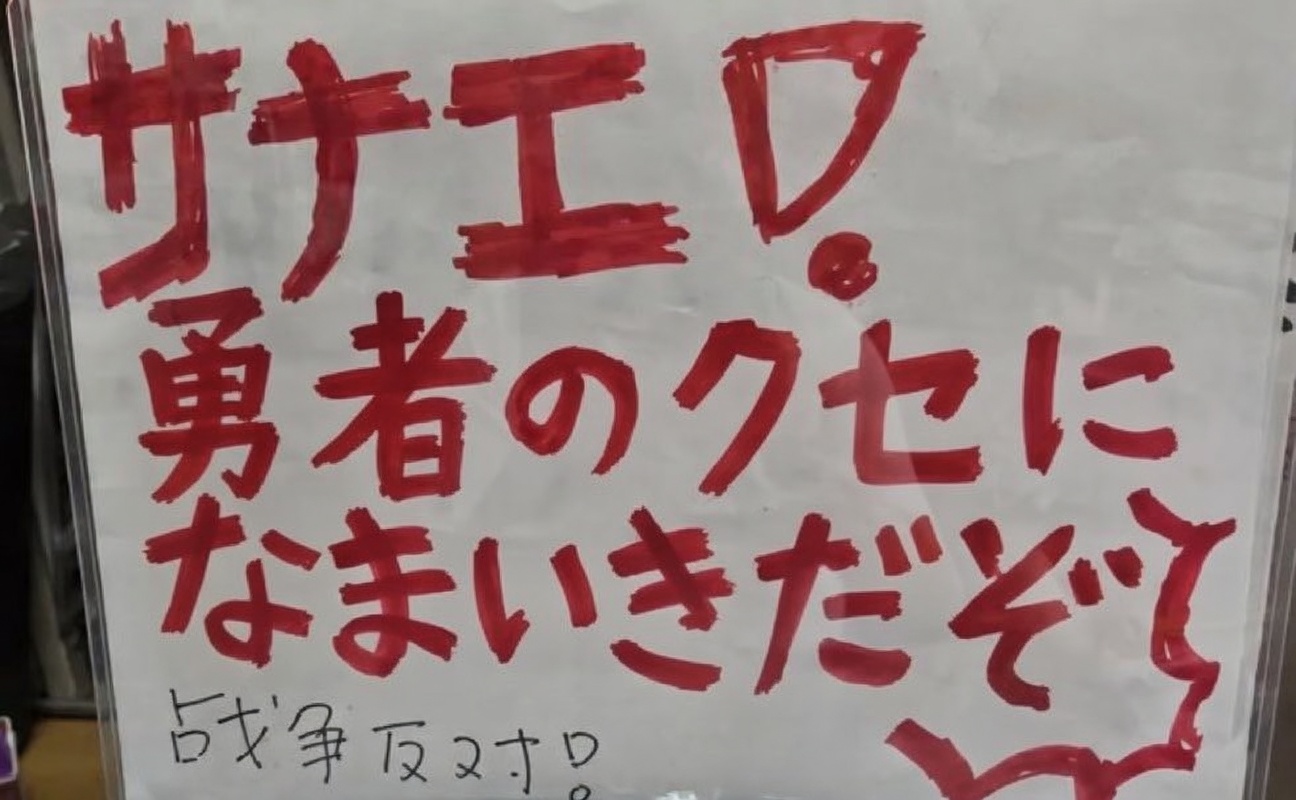 サナエ!
勇者のクセに
なまいきだぞ
战争反对!